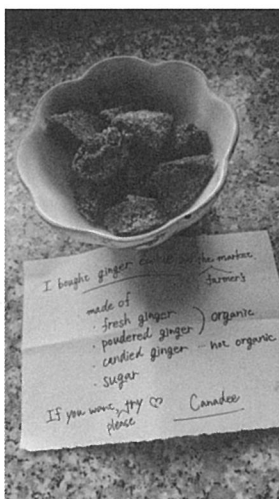 I bought ginger at the market.
farmer's
made of
· fresh ginger
· powdered ginger ) organic
· candied ginger - not organic
· sugar
If you want, try ♡
please
Canadee